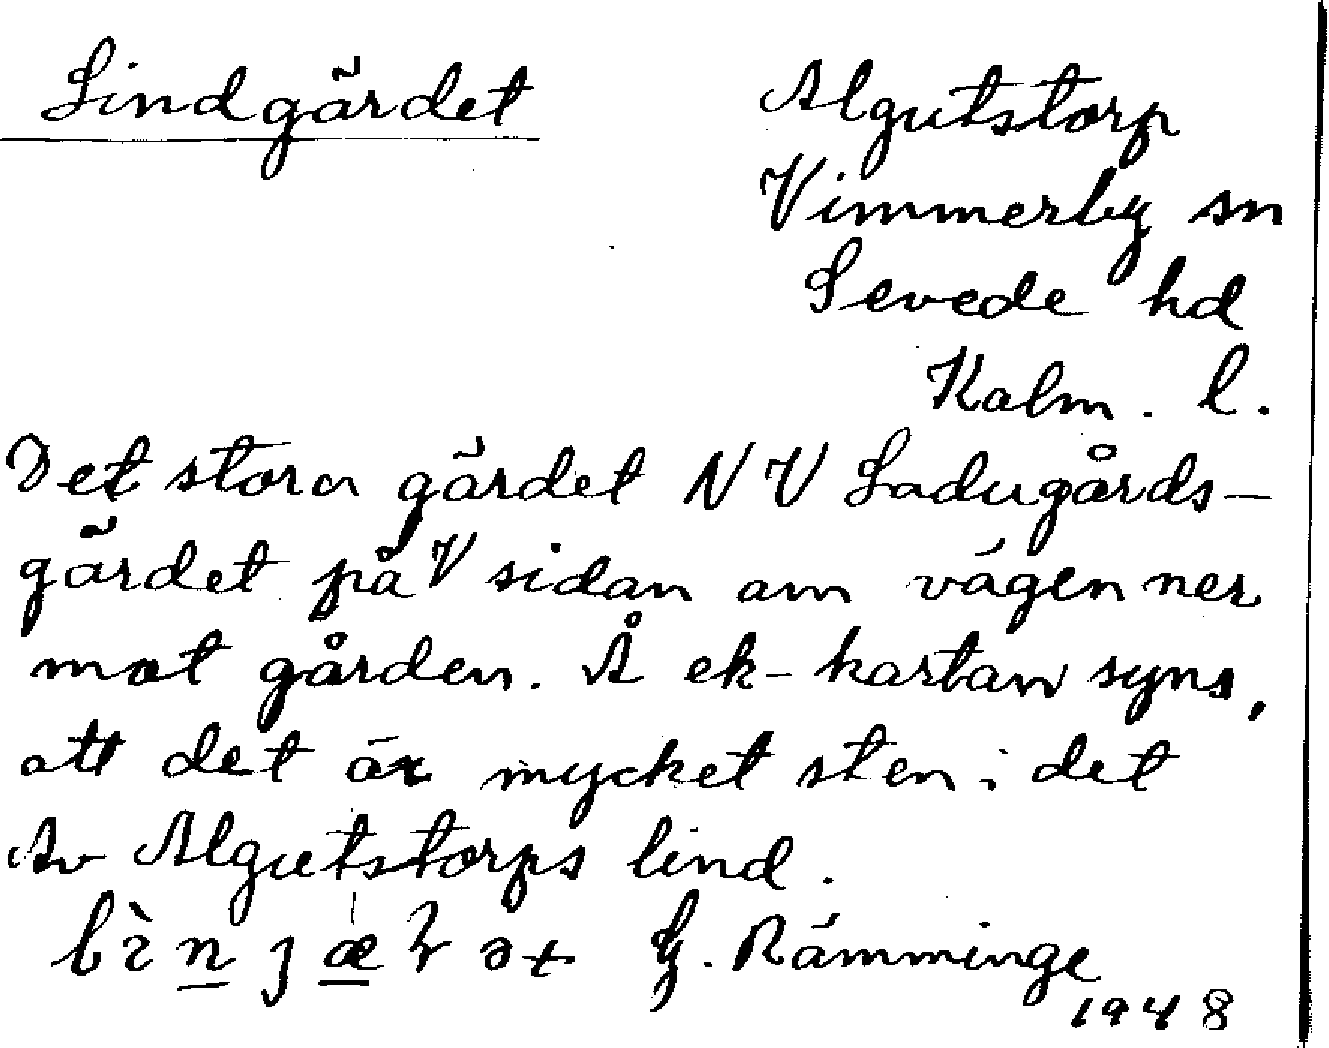 Lindgärdet
Algutstorp
Vimmerby sn
Sevede hd
Kalm. l.
Det stora gärdet NV Ladugårds-
gärdet på V sidan om vägen ner
mot gården. Å ek-kartan syns,
att det är mycket sten i det
Av Algutstorps lind.
G. Rämminge
1948